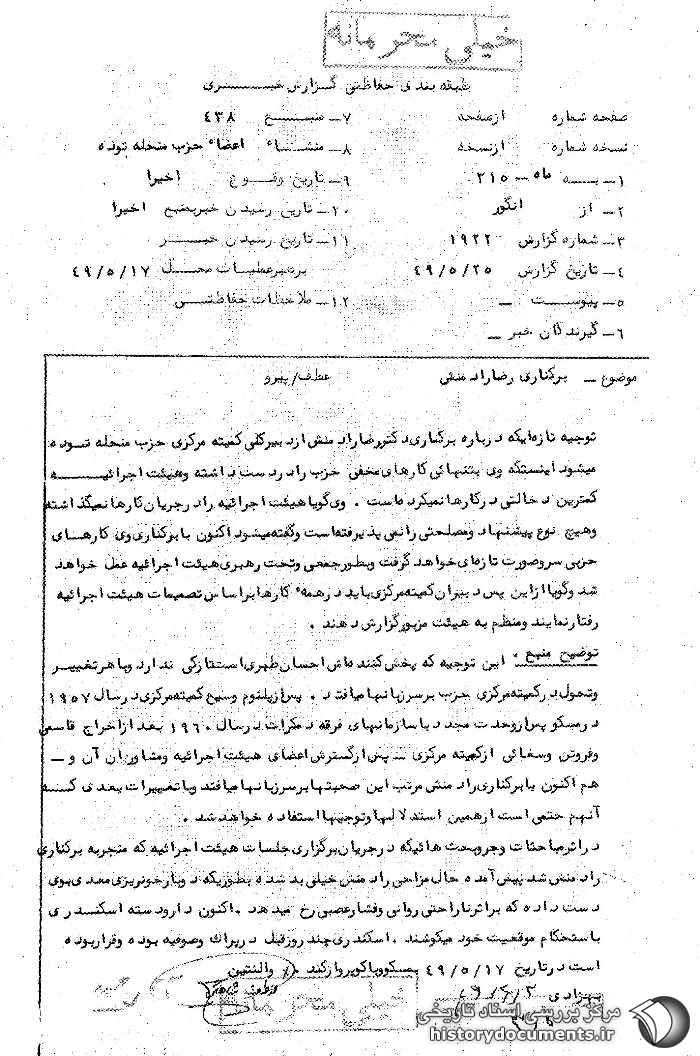 خیلی محرمانه
طبقه بندی حفاظتی گزارش خبری
صفحه شماره از صفحه
نسخه شماره از نسخه
۱- به ماه - ۲۱۵
۲- از انگور
۳- شماره گزارش ۱۹۲۲
۴- تاریخ گزارش ۴۹/۵/۲۵
۵- پیوست -
۶- گیرندگان خبر -
۷- منبع ۴۳۸
۸- منشاء اعضاء حزب منحله توده
۹- تاریخ وقوع اخیرا
۱۰- تاریخ رسیدن خبر بمنبع اخیرا
۱۱- تاریخ رسیدن خبر
برهبر عملیات محل ۴۹/۵/۱۷
۱۲- ملاحظات حفاظتی
موضوع - برکناری رضا رادمنش عطف/پیرو
توجیه تازه‌ایکه درباره برکناری دکتر رضا رادمنش از دبیر کلی کمیته مرکزی حزب منحله توده
میشود اینستکه وی بتنهائی کارهای مخفی حزب را در دست داشته و هیئت اجرائیه
کمترین دخالتی در کارها نمیکرده است . وی گویا هیئت اجرائیه را در جریان کارها نمیگذاشته
و هیچ نوع پیشنهاد و مصلحتی را نمی پذیرفته است و گفته میشود اکنون با برکناری وی کارهای
حزبی سر و صورت تازه‌ای خواهد گرفت و بطور جمعی و تحت رهبری هیئت اجرائیه عمل خواهد
شد و گویا از این پس دبیران کمیته مرکزی باید در همه کارها بر اساس تصمیمات هیئت اجرائیه
رفتار نمایند و منظم به هیئت مزبور گزارش دهند .
توضیح منبع . این توجیه که پخش کننده اش احسان طبری است تازگی ندارد و با هر تغییر
و تحول در کمیته مرکزی حزب بر سر زبانها میافتد . پس از پلنوم وسیع کمیته مرکزی در سال ۱۹۵۷
در مسکو پس از وحدت مجدد با سازمانهای فرقه دمکرات در سال ۱۹۶۰ بعد از اخراج قاسمی
و فروتن و سغائی از کمیته مرکزی - پس از گسترش اعضای هیئت اجرائیه و مشاوران آن و -
هم اکنون با برکناری رادمنش مرتب این صحبتها بر سر زبانها میافتد و با تغییرات بعدی که
آنهم حتمی است از همین استدلالها و توجیها استفاده خواهد شد .
در اثر مباحثات و جر و بحث هائیکه در جریان برگزاری جلسات هیئت اجرائیه که منجر به برکناری
رادمنش شد پیش آمده حال مزاجی رادمنش خیلی بد شده بطوریکه دوبار خونریزی معدی بوی
دست داده که بر اثر ناراحتی روانی و فشار عصبی رخ میدهد . اکنون دارودسته اسکندری
باستحکام موقعیت خود میکوشند . اسکندری چند روز قبل در پراگ و صوفیه بوده و قرار بوده
است در تاریخ ۴۹/۵/۱۷ بمسکو و باکو پرواز کند ٪ والنتین
بهزادی ۴۹/۶/۲
خیلی محرمانه
مرکز بررسی اسناد تاریخی
historydocuments.ir